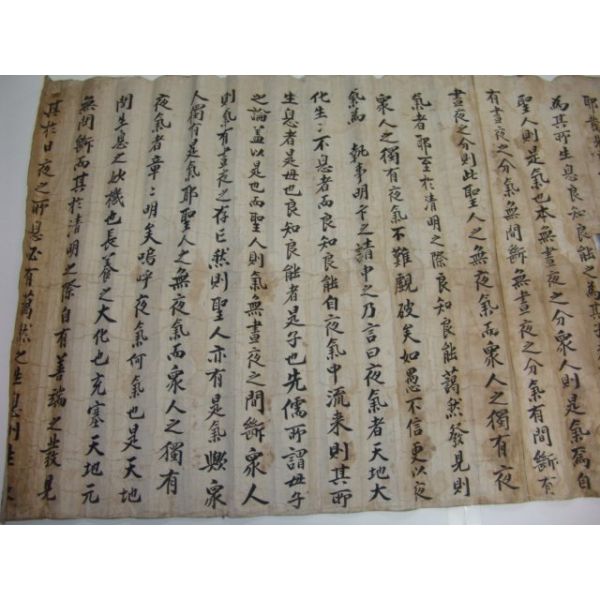 耶昔
為其所生息良知良能之為其子
聖人則是氣也本無晝夜之分衆人則是氣焉自
有晝夜之分氣無間斷無晝夜之分氣有間斷有
晝夜之分則此聖人之無夜氣而衆人之獨有夜
氣者耶至於清明之際良知良能藹然發見則
衆人之獨有夜氣不難觀破矣如愚不信更以夜
氣為 執事明乎之請申之乃言曰夜氣者天地大
化生〻不息者而良知良能自夜氣中流来則其所
生息者是母也良知良能者是子也先儒所謂母子
之論盖以是也而聖人則氣無晝夜之間斷衆人
則氣有晝夜之存亡然則聖人亦有是氣歟衆
人獨有是氣耶聖人之無夜氣而衆人之獨有
夜氣者章〻明矣嗚呼夜氣何氣也是天地
間生息之妙機也長養之大化也充塞天地元
無間斷而其於清明之際自有善端之發見
其於日夜之所息必有藹然之生息則